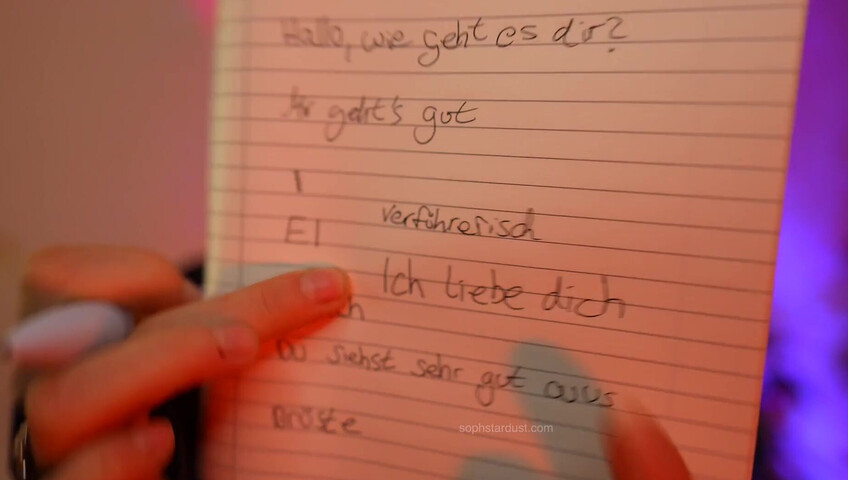 Hallo, wie geht es dir?
geht's gut
I
EI
verführerisch
Ich liebe dich
h
Du siehst sehr gut auus
Brüste
sophstardust.com